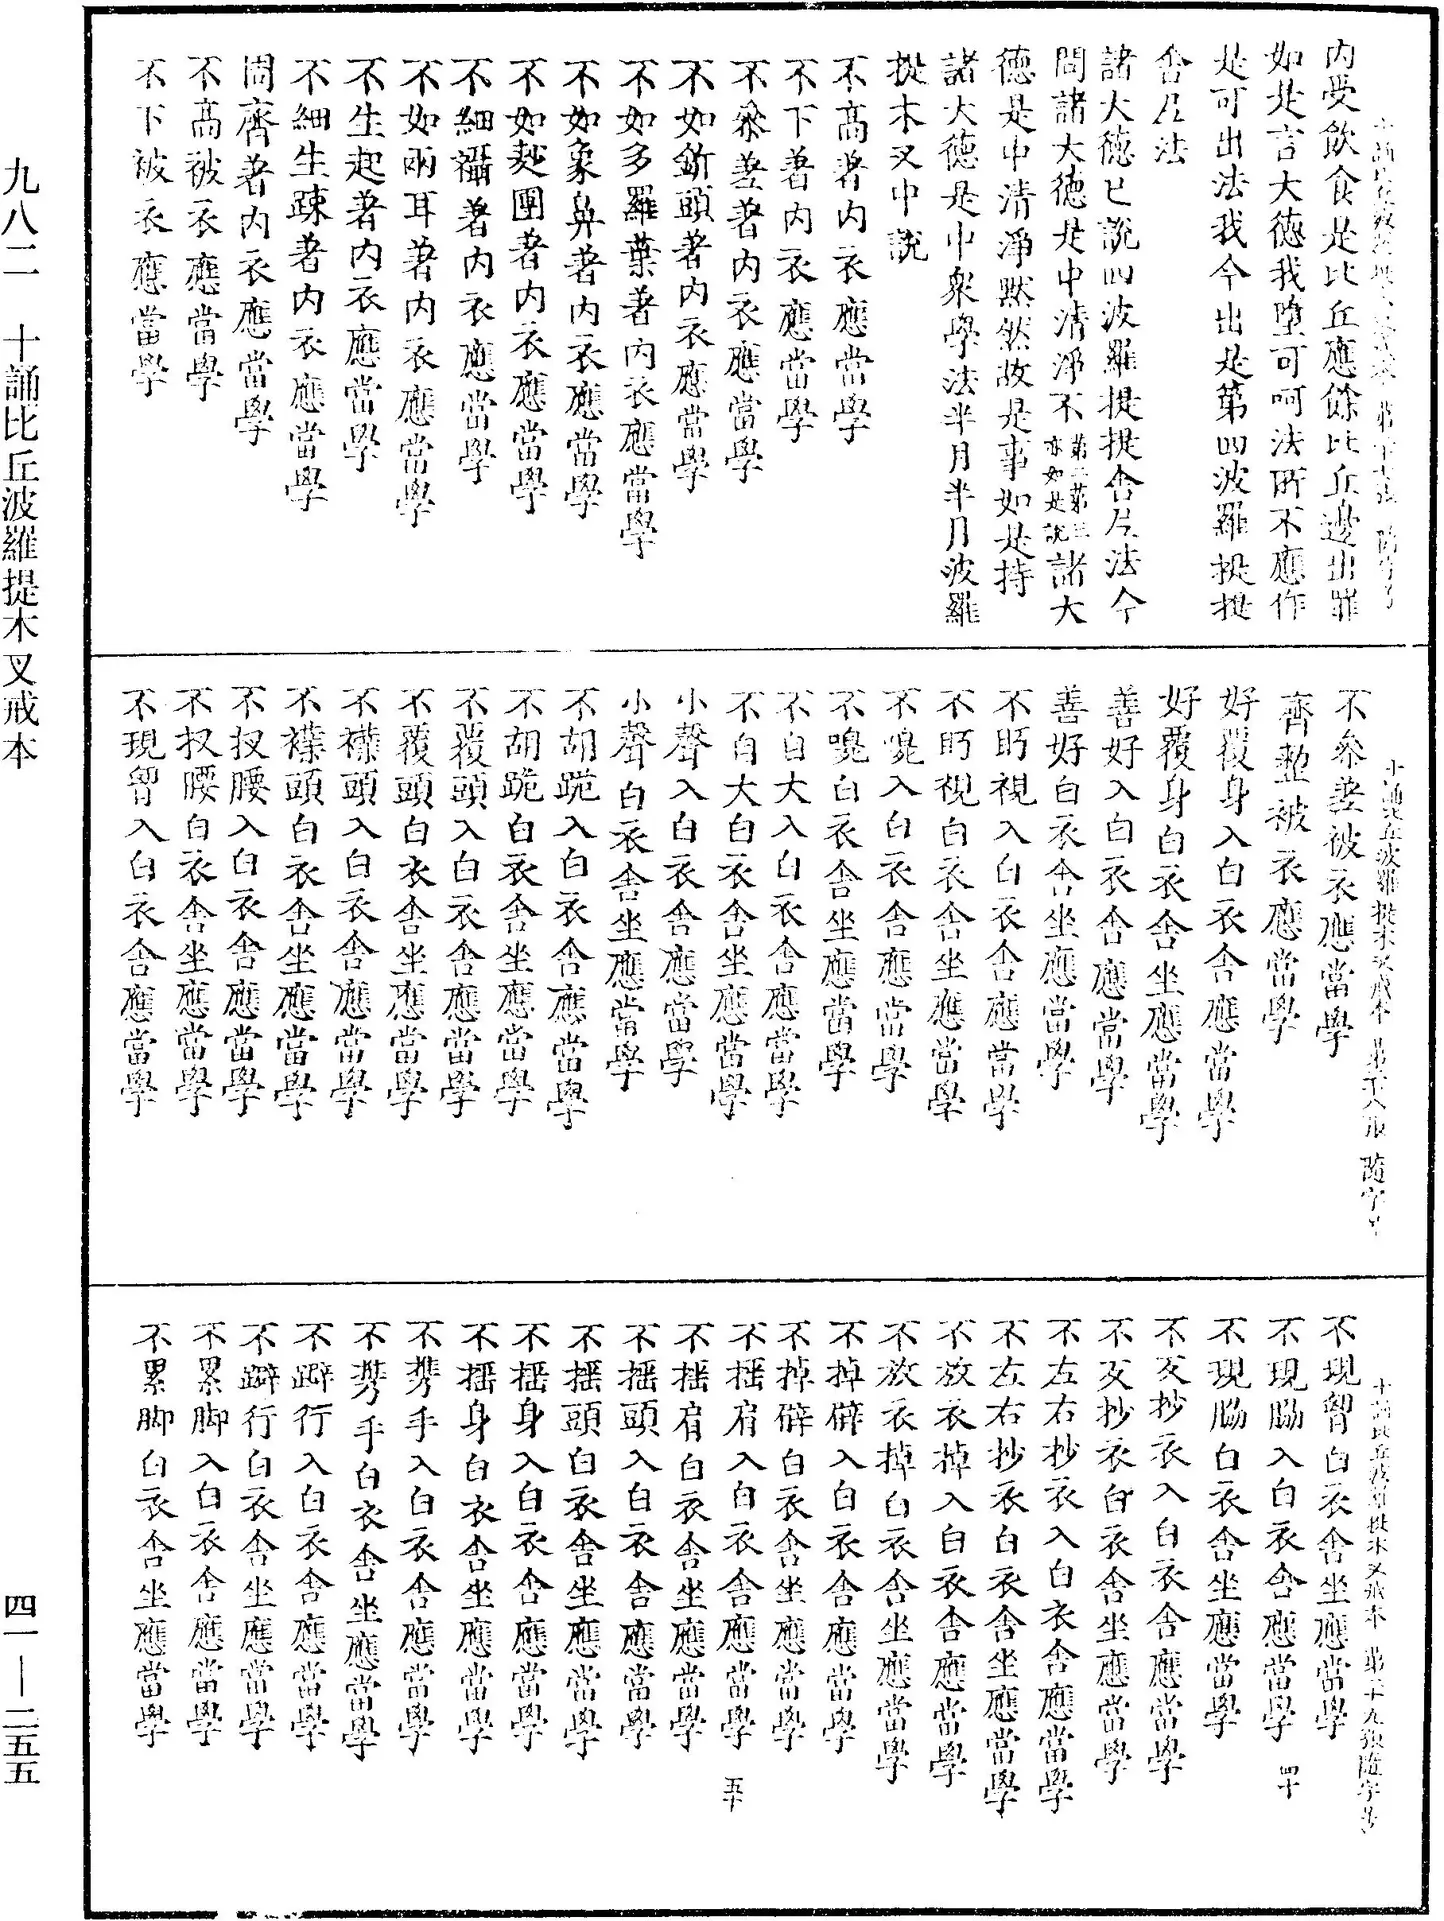 內受飲食是比丘應餘比丘邊出罪
如是言大德我墮可呵法所不應作
是可出法我今出是第四波羅提提
舍尼法
諸大德已說四波羅提提舍尼法今
問諸大德是中清淨不第二第三亦如是說諸大
德是中清淨默然故是事如是持
諸大德是中眾學法半月半月波羅
提木叉中說
不高著內衣應當學
不下著內衣應當學
不參差著內衣應當學
不如釿頭著內衣應當學
不如多羅葉著內衣應當學
不如象鼻著內衣應當學
不如麨團著內衣應當學
不細襵著內衣應當學
不如兩耳著內衣應當學
不生起著內衣應當學
不細生踈著內衣應當學
周齊著內衣應當學
不高被衣應當學
不下被衣應當學
十誦比丘波羅提木叉戒本 第十八張 隨字号
不參差被衣應當學
齊整被衣應當學
好覆身入白衣舍應當學
好覆身白衣舍坐應當學
善好入白衣舍應當學
善好白衣舍坐應當學
不眄視入白衣舍應當學
不眄視白衣舍坐應當學
不嚾入白衣舍應當學
不嚾白衣舍坐應當學
不自大入白衣舍應當學
不自大白衣舍坐應當學
小聲入白衣舍應當學
小聲白衣舍坐應當學
不胡跪入白衣舍應當學
不胡跪白衣舍坐應當學
不覆頭入白衣舍應當學
不覆頭白衣舍坐應當學
不襆頭入白衣舍應當學
不襆頭白衣舍坐應當學
不扠腰入白衣舍應當學
不扠腰白衣舍坐應當學
不現胷入白衣舍應當學
十誦比丘波羅提木叉戒本 第十九張 隨字号
不現胷白衣舍坐應當學
不現脇入白衣舍應當學 四十
不現脇白衣舍坐應當學
不反抄衣入白衣舍應當學
不反抄衣白衣舍坐應當學
不左右抄衣入白衣舍應當學
不左右抄衣白衣舍坐應當學
不放衣掉入白衣舍應當學
不放衣掉白衣舍坐應當學
不掉臂入白衣舍應當學
不掉臂白衣舍坐應當學
不搖肩入白衣舍應當學 五十
不搖肩白衣舍坐應當學
不搖頭入白衣舍應當學
不搖頭白衣舍坐應當學
不搖身入白衣舍應當學
不搖身白衣舍坐應當學
不携手入白衣舍應當學
不携手白衣舍坐應當學
不躃行入白衣舍應當學
不躃行白衣舍坐應當學
不累脚入白衣舍應當學
不累脚白衣舍坐應當學
九八二 十誦比丘波羅提木叉戒本
四一—二五五